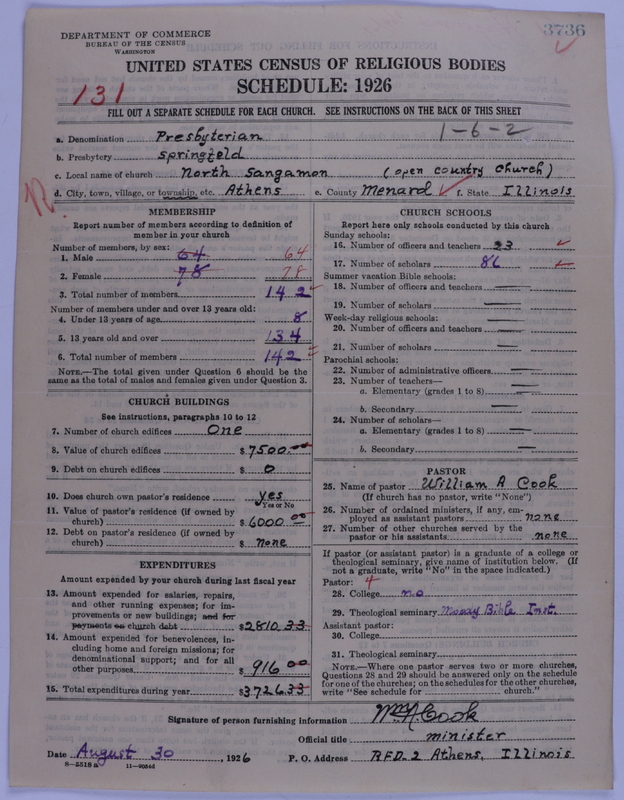 3736
DEPARTMENT OF COMMERCE
BUREAU OF THE CENSUS
WASHINGTON
UNITED STATES CENSUS OF RELIGIOUS BODIES
SCHEDULE: 1926
131
FILL OUT A SEPARATE SCHEDULE FOR EACH CHURCH. SEE INSTRUCTIONS ON THE BACK OF THIS SHEET
1-6-2
a. Denomination Presbyterian
b. Presbytery Springfeld
c. Local name of church North Sangamon (open country church)
d. City, town, village, or township, etc. Athens e. County Menard f. State Illinois
MEMBERSHIP
Report number of members according to definition of
member in your church
Number of members, by sex:
1. Male 64 64
2. Female 78 78
3. Total number of members 142
Number of members under and over 13 years old:
4. Under 13 years of age 8
5. 13 years old and over 134
6. Total number of members 142
NOTE.—The total given under Question 6 should be
same as the total of males and females given under Question 3.
CHURCH BUILDINGS
See instructions, paragraphs 10 to 12
7. Number of church edifices One
8. Value of church edifices $7500.00
9. Debt on church edifices $ 0
10. Does church own pastor's residence yes
Yes or No
11. Value of pastor's residence (if owned by
church) $6000 00
12. Debt on pastor's residence (if owned by
church) $ none
EXPENDITURES
Amount expended by your church during last fiscal year
13. Amount expended for salaries, repairs,
and other running expenses; for im-
provements or new buildings; and for
payments on church debt $2810.33
14. Amount expended for benevolences, in-
cluding home and foreign missions; for
denominational support; and for all
other purposes $ 916 00
15. Total expenditures during year $3726.33
CHURCH SCHOOLS
Report here only schools conducted by this church
Sunday schools:
16. Number of officers and teachers 23
17. Number of scholars 86
Summer vacation Bible schools:
18. Number of officers and teachers —
19. Number of scholars —
Week-day religious schools: —
20. Number of officers and teachers —
21. Number of scholars —
Parochial schools:
22. Number of administrative officers —
23. Number of teachers—
a. Elementary (grades 1 to 8) —
b. Secondary —
24. Number of scholars—
a. Elementary (grades 1 to 8) —
b. Secondary —
PASTOR
25. Name of pastor William A Cook
(If church has no pastor, write "None")
26. Number of ordained ministers, if any, em-
ployed as assistant pastors none
27. Number of other churches served by the
pastor or his assistants none
If pastor (or assistant pastor) is a graduate of a college or
theological seminary, give name of institution below. (If
not a graduate, write "No" in the space indicated.)
Pastor: 4
28. College no
29. Theological seminary Moody Bible Inst.
Assistant pastor:
30. College
31. Theological seminary
NOTE.—Where one pastor serves two or more churches,
Questions 28 and 29 should be answered only on the schedule
for one of the churches; on the schedules for the other churches,
write "See schedule for church."
Signature of person furnishing information Wm A. Cook
Official title minister
Date August 30, 1926 P. O. Address RFD-2 Athens, Illinois
8—5518a